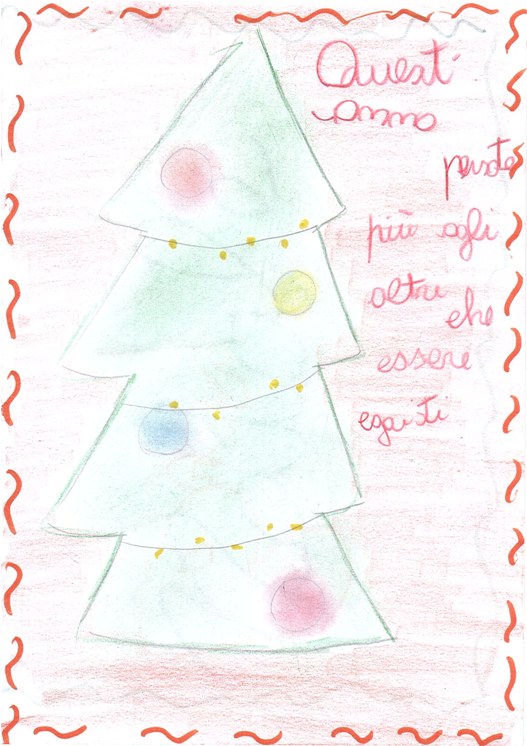 Quest'
anno
pensate
più agli
altri che
essere
egoisti